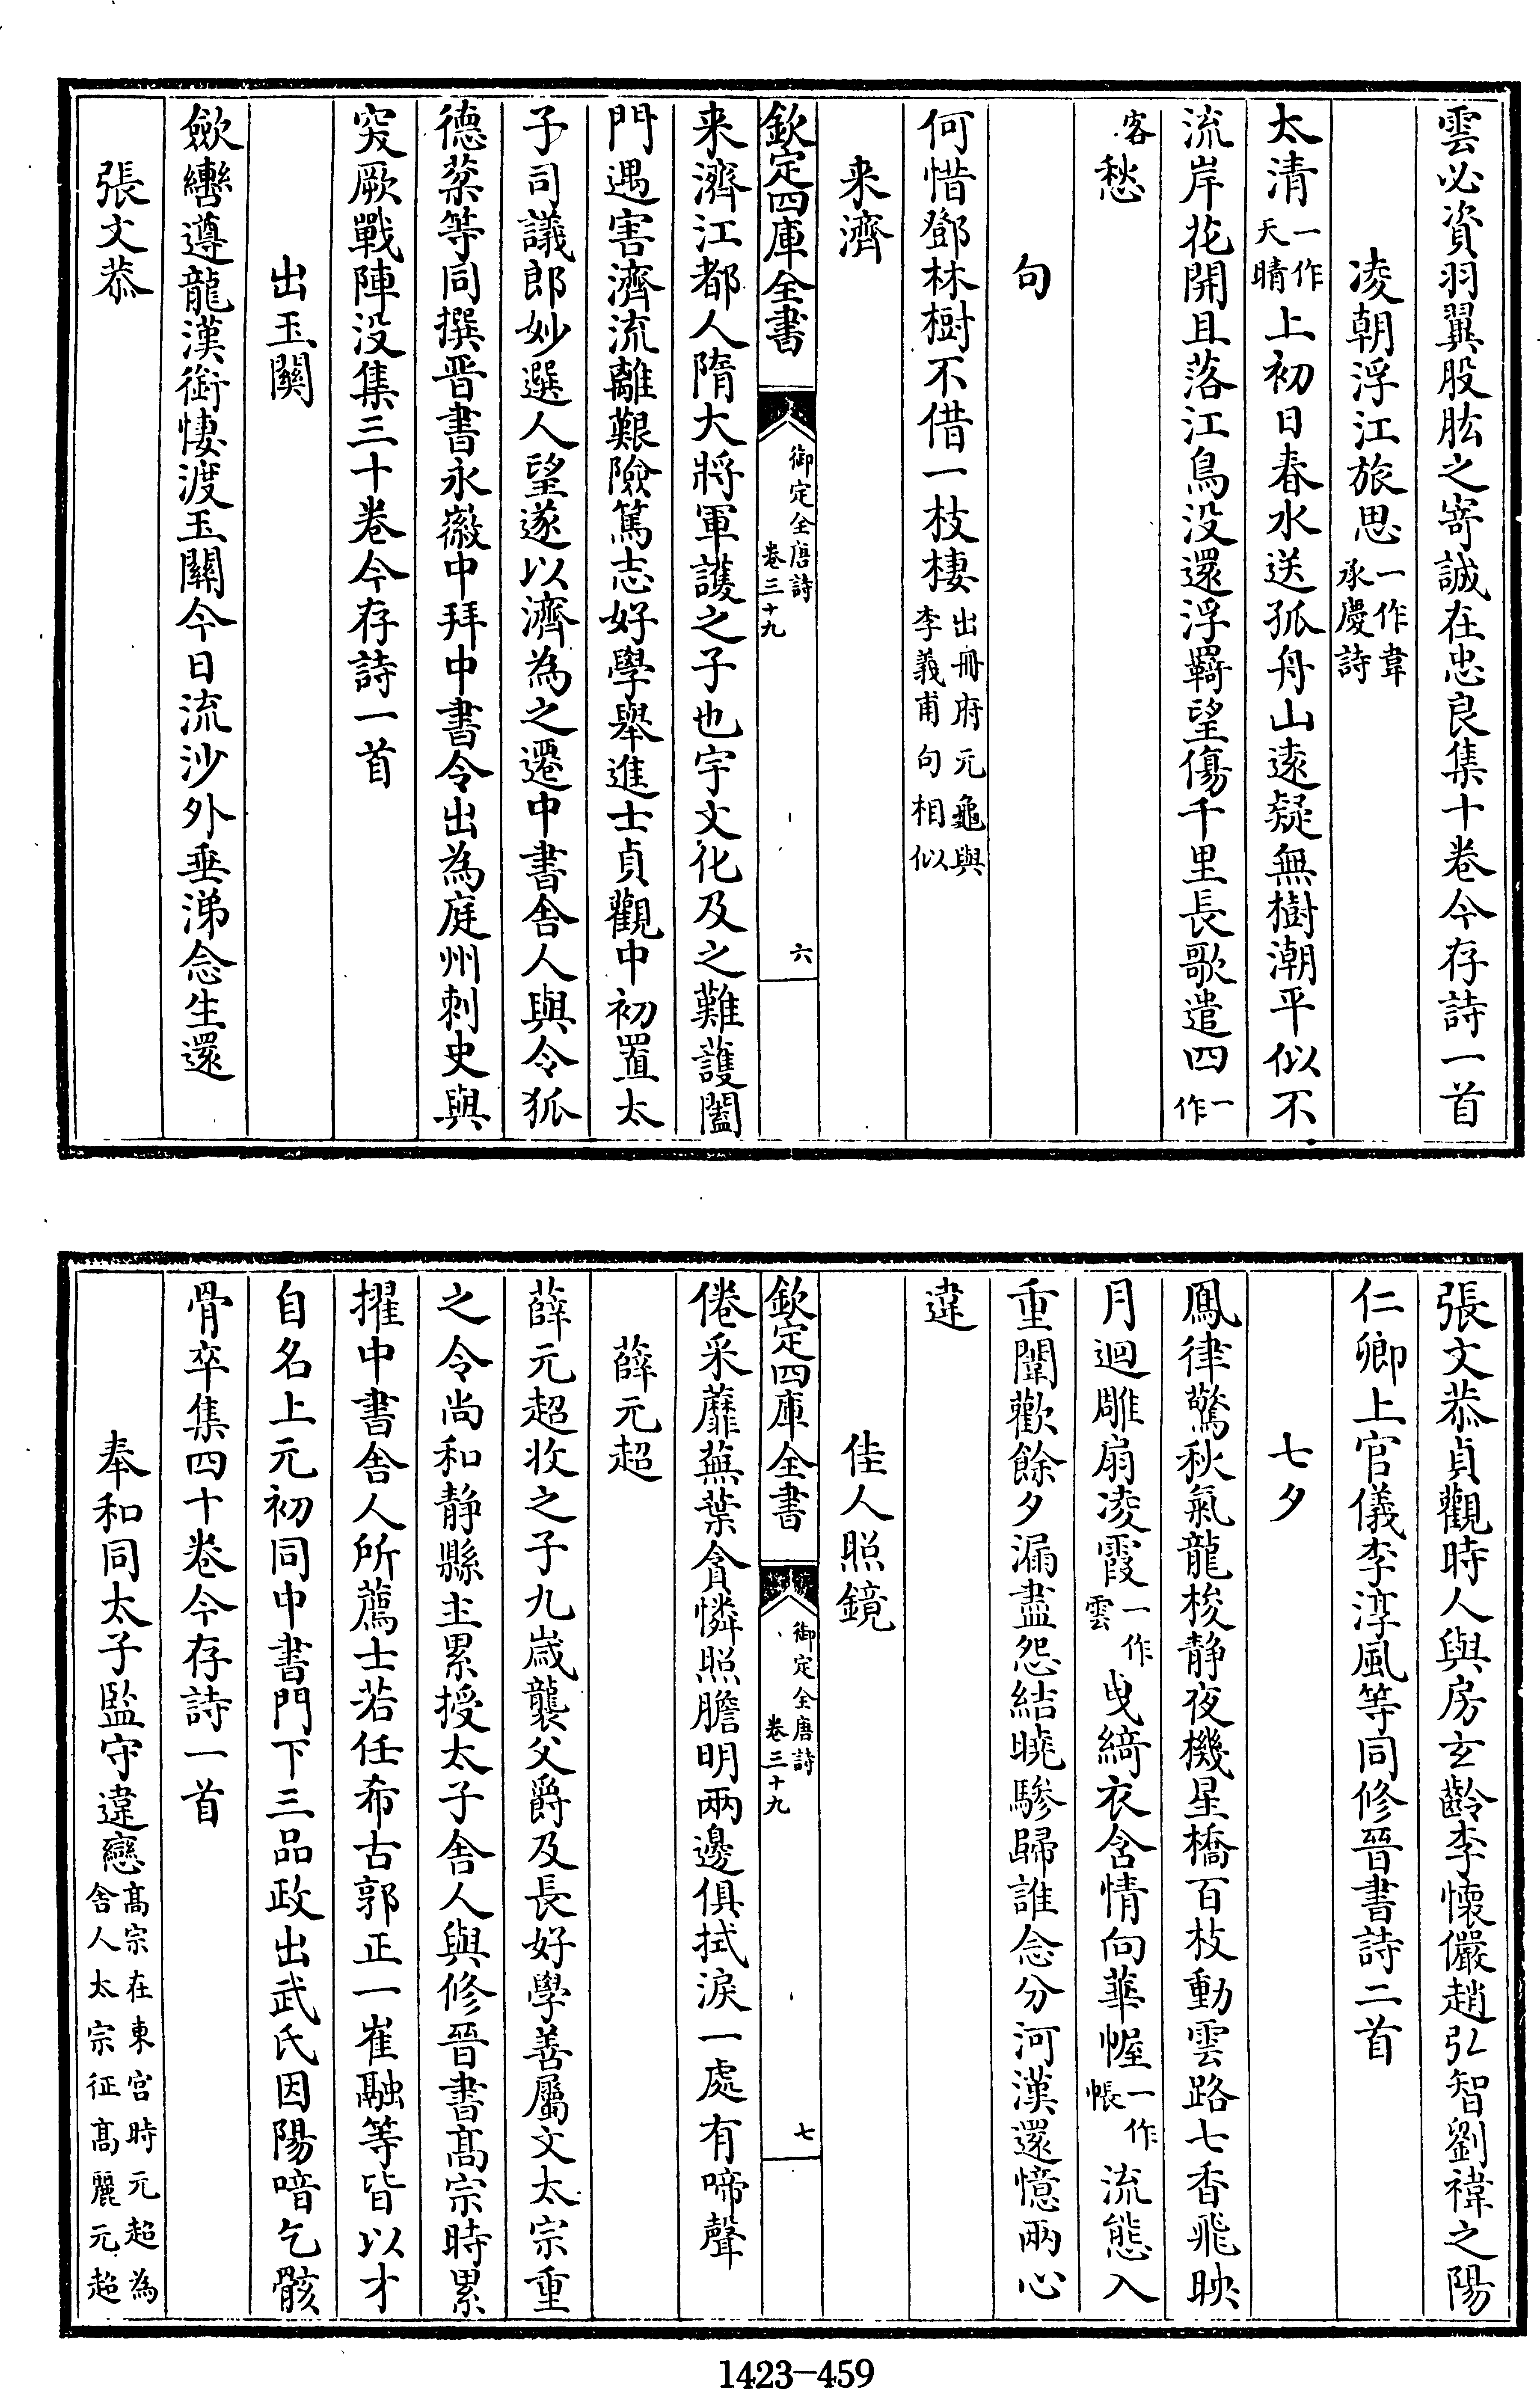 雲必資羽翼股肱之寄誠在忠良集十卷今存詩一首
凌朝浮江旅思一作韋承慶詩
太清一作天晴上初日春水送孤舟山遠疑無樹潮平似不
流岸花開且落江鳥没還浮羇望傷千里長歌遣四一作
客愁
句
何惜鄧林樹不借一枝棲出冊府元龜與李義甫句相似
来濟
欽定四庫全書
御定全唐詩
卷三十九
六
来濟江都人隋大將軍護之子也宇文化及之難護闔
門遇害濟流離艱險篤志好學舉進士貞觀中初置太
子司議郎妙選人望遂以濟為之遷中書舍人與令狐
德棻等同撰晋書永徽中拜中書令出為庭州刺史與
突厥戰陣没集三十卷今存詩一首
出玉關
歛轡遵龍漢銜悽渡玉關今日流沙外垂涕念生還
張文恭
張文恭貞觀時人與房玄齡李懷儼趙弘智劉禕之陽
仁卿上官儀李淳風等同修晉書詩二首
七夕
鳳律驚秋氣龍梭静夜機星橋百枝動雲路七香飛映
月迴雕扇凌霞一作雲曵綺衣含情向華幄一作帳流態入
重闈歡餘夕漏盡怨結曉驂歸誰念分河漢還憶兩心
違
佳人照鏡
欽定四庫全書
御定全唐詩
卷三十九
七
倦采蘼蕪葉貪憐照膽明兩邊俱拭淚一處有啼聲
薛元超
薛元超收之子九歲襲父爵及長好學善屬文太宗重
之令尚和静縣主累授太子舍人與修晉書高宗時累
擢中書舍人所薦士若任希古郭正一崔融等皆以才
自名上元初同中書門下三品政出武氏因陽喑乞骸
骨卒集四十卷今存詩一首
奉和同太子監守違戀高宗在東宫時元超為舍人太宗征高麗元超
1423-459